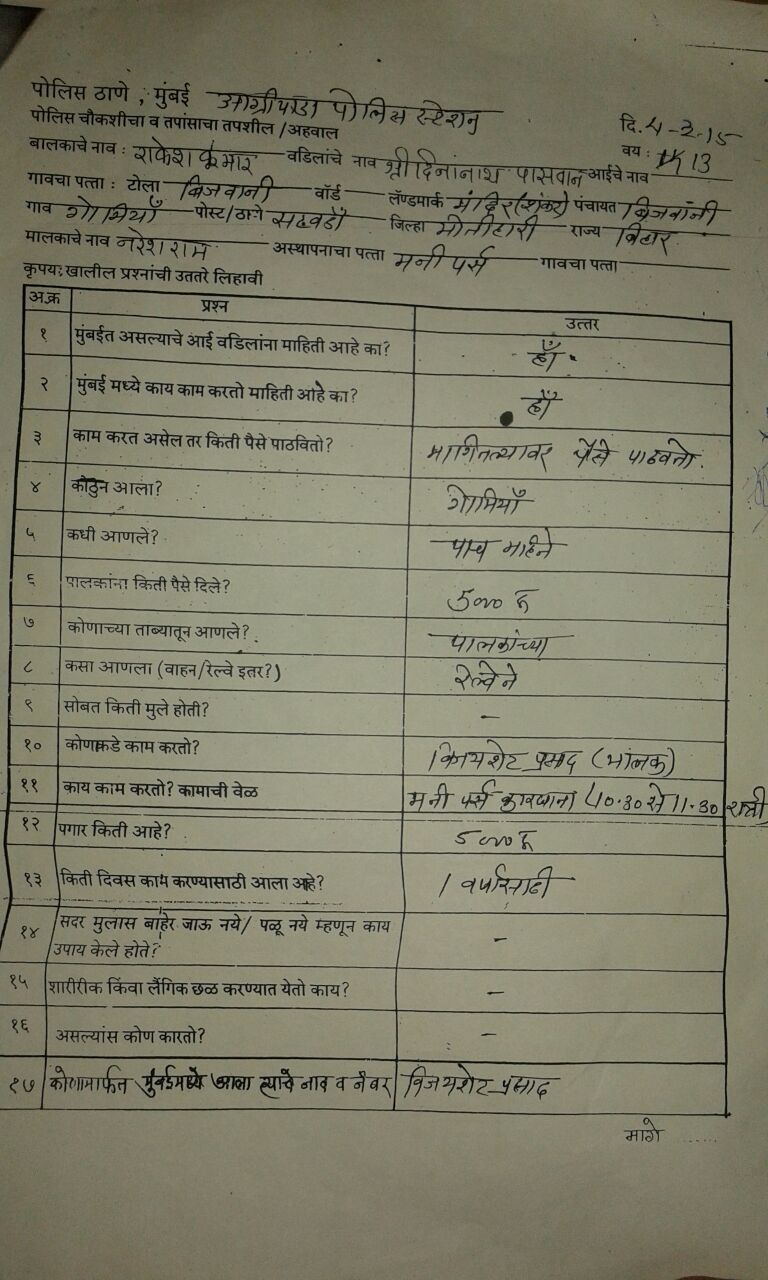 पोलिस ठाणे , मुंबई आग्रीपाडा पोलिस स्टेशन
पोलिस चौकशीचा व तपांसाचा तपशील /अहवाल दि. 4-2-15
बालकाचे नाव : राकेश कुमार वडिलांचे नाव श्री दिनांनाथ पासवान आईचे नाव वय : 13
गावचा पत्ता : टोला बिजवानी वॉर्ड लॅण्डमार्क मंदिर (शंकर) पंचायत बिजवांनी
गाव गोमियाँ पोस्ट/ठाणे जिल्हा मोतीहारी राज्य बिहार
मालकाचे नाव नरेश राम अस्थापनाचा पत्ता मनी पर्स गावचा पत्ता
कृपयः खालील प्रश्नांची उततरे लिहावी
अ.क्र प्रश्न उत्तर
१ मुंबईत असल्याचे आई वडिलांना माहिती आहे का? हाँ
२ मुंबई मध्ये काय काम करतो माहिती आहे का? हाँ
३ काम करत असेल तर किती पैसे पाठवितो? मागितल्यावर पैसे पाठवतो.
४ कोठुन आला? गोमियाँ
५ कधी आणले? पाच महिने
६ पालकांना किती पैसे दिले? 5000 रु
७ कोणाच्या ताब्यातून आणले? पालकांच्या
८ कसा आणला (वाहन/रेल्वे इतर?) रेल्वेने
९ सोबत किती मुले होती? -
१० कोणाकडे काम करतो? विजयशेट प्रसाद (मालक)
११ काय काम करतो? कामाची वेळ मनी पर्स कारखाना 10.30 से 11.30 रात्री
१२ पगार किती आहे? 5000 रु
१३ किती दिवस काम करण्यासाठी आला आहे? 1 वर्षासाठी
१४ सदर मुलास बाहेर जाऊ नये/ पळू नये म्हणून काय -
उपाय केले होते?
१५ शारीरीक किंवा लैंगिक छळ करण्यात येतो काय? -
१६ असल्यांस कोण कारतो? -
१७ कोणामार्फत मुंबईमध्ये आला त्याचे नाव व नंबर विजयशेट प्रसाद
मागे ......